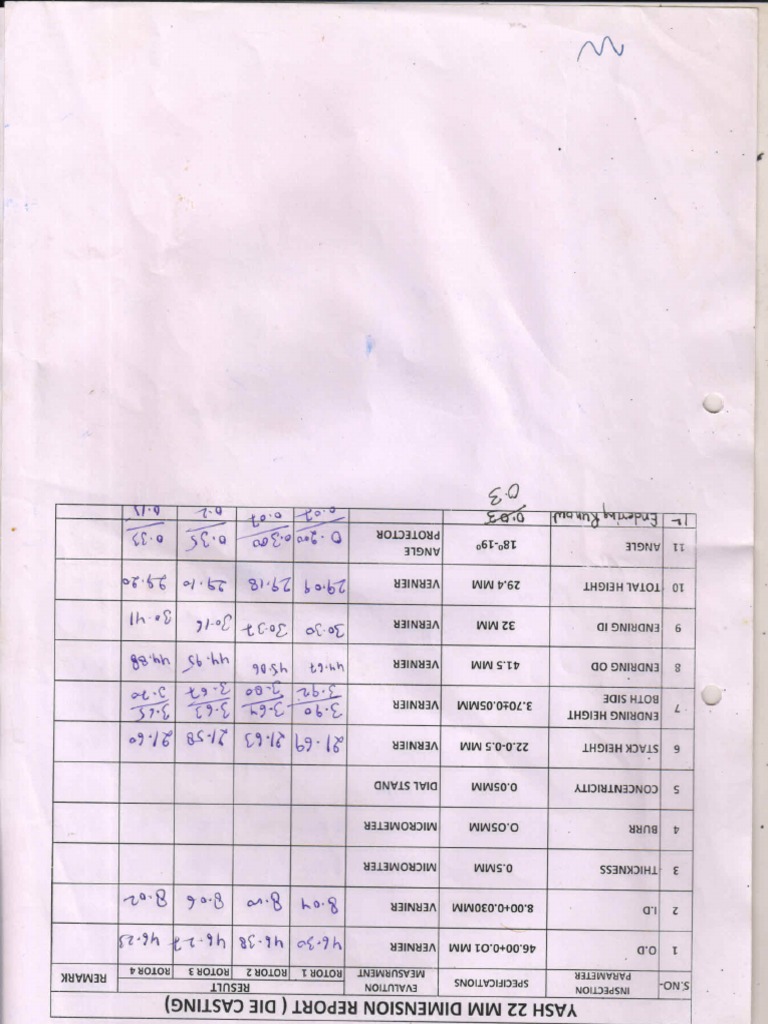 YASH 22 MM DIMENSION REPORT ( DIE CASTING)
S.NO- INSPECTION PARAMETER SPECIFICATIONS EVALUTION MEASURMENT RESULT REMARK
ROTOR 1 ROTOR 2 ROTOR 3 ROTOR 4
1 O.D 46.00+0.O1 MM VERNIER 46.30 46.38 46.27 46.25
2 I.D 8.00+0.030MM VERNIER 8.04 8.10 8.06 8.02
3 THICKNESS 0.5MM MICROMETER
4 BURR O.O5MM MICROMETER
5 CONCENTRICITY 0.05MM DIAL STAND
6 STACK HEIGHT 22.0-0.5 MM VERNIER 21.69 21.63 21.58 21.60
7 ENDRING HEIGHT BOTH SIDE 3.70±0.05MM VERNIER 3.90 3.64 3.63 3.65
3.92 3.80 3.67 3.70
8 ENDRING OD 41.5 MM VERNIER 44.67 45.06 44.95 44.88
9 ENDRING ID 32 MM VERNIER 30.30 30.37 30.16 30.41
10 TOTAL HEIGHT 29.4 MM VERNIER 29.09 29.18 29.10 29.20
11 ANGLE 18º-19º ANGLE PROTECTOR 0.200 0.300 0.35 0.33
Endering Runout 0.03 0.07 0.07 0.2
0.3